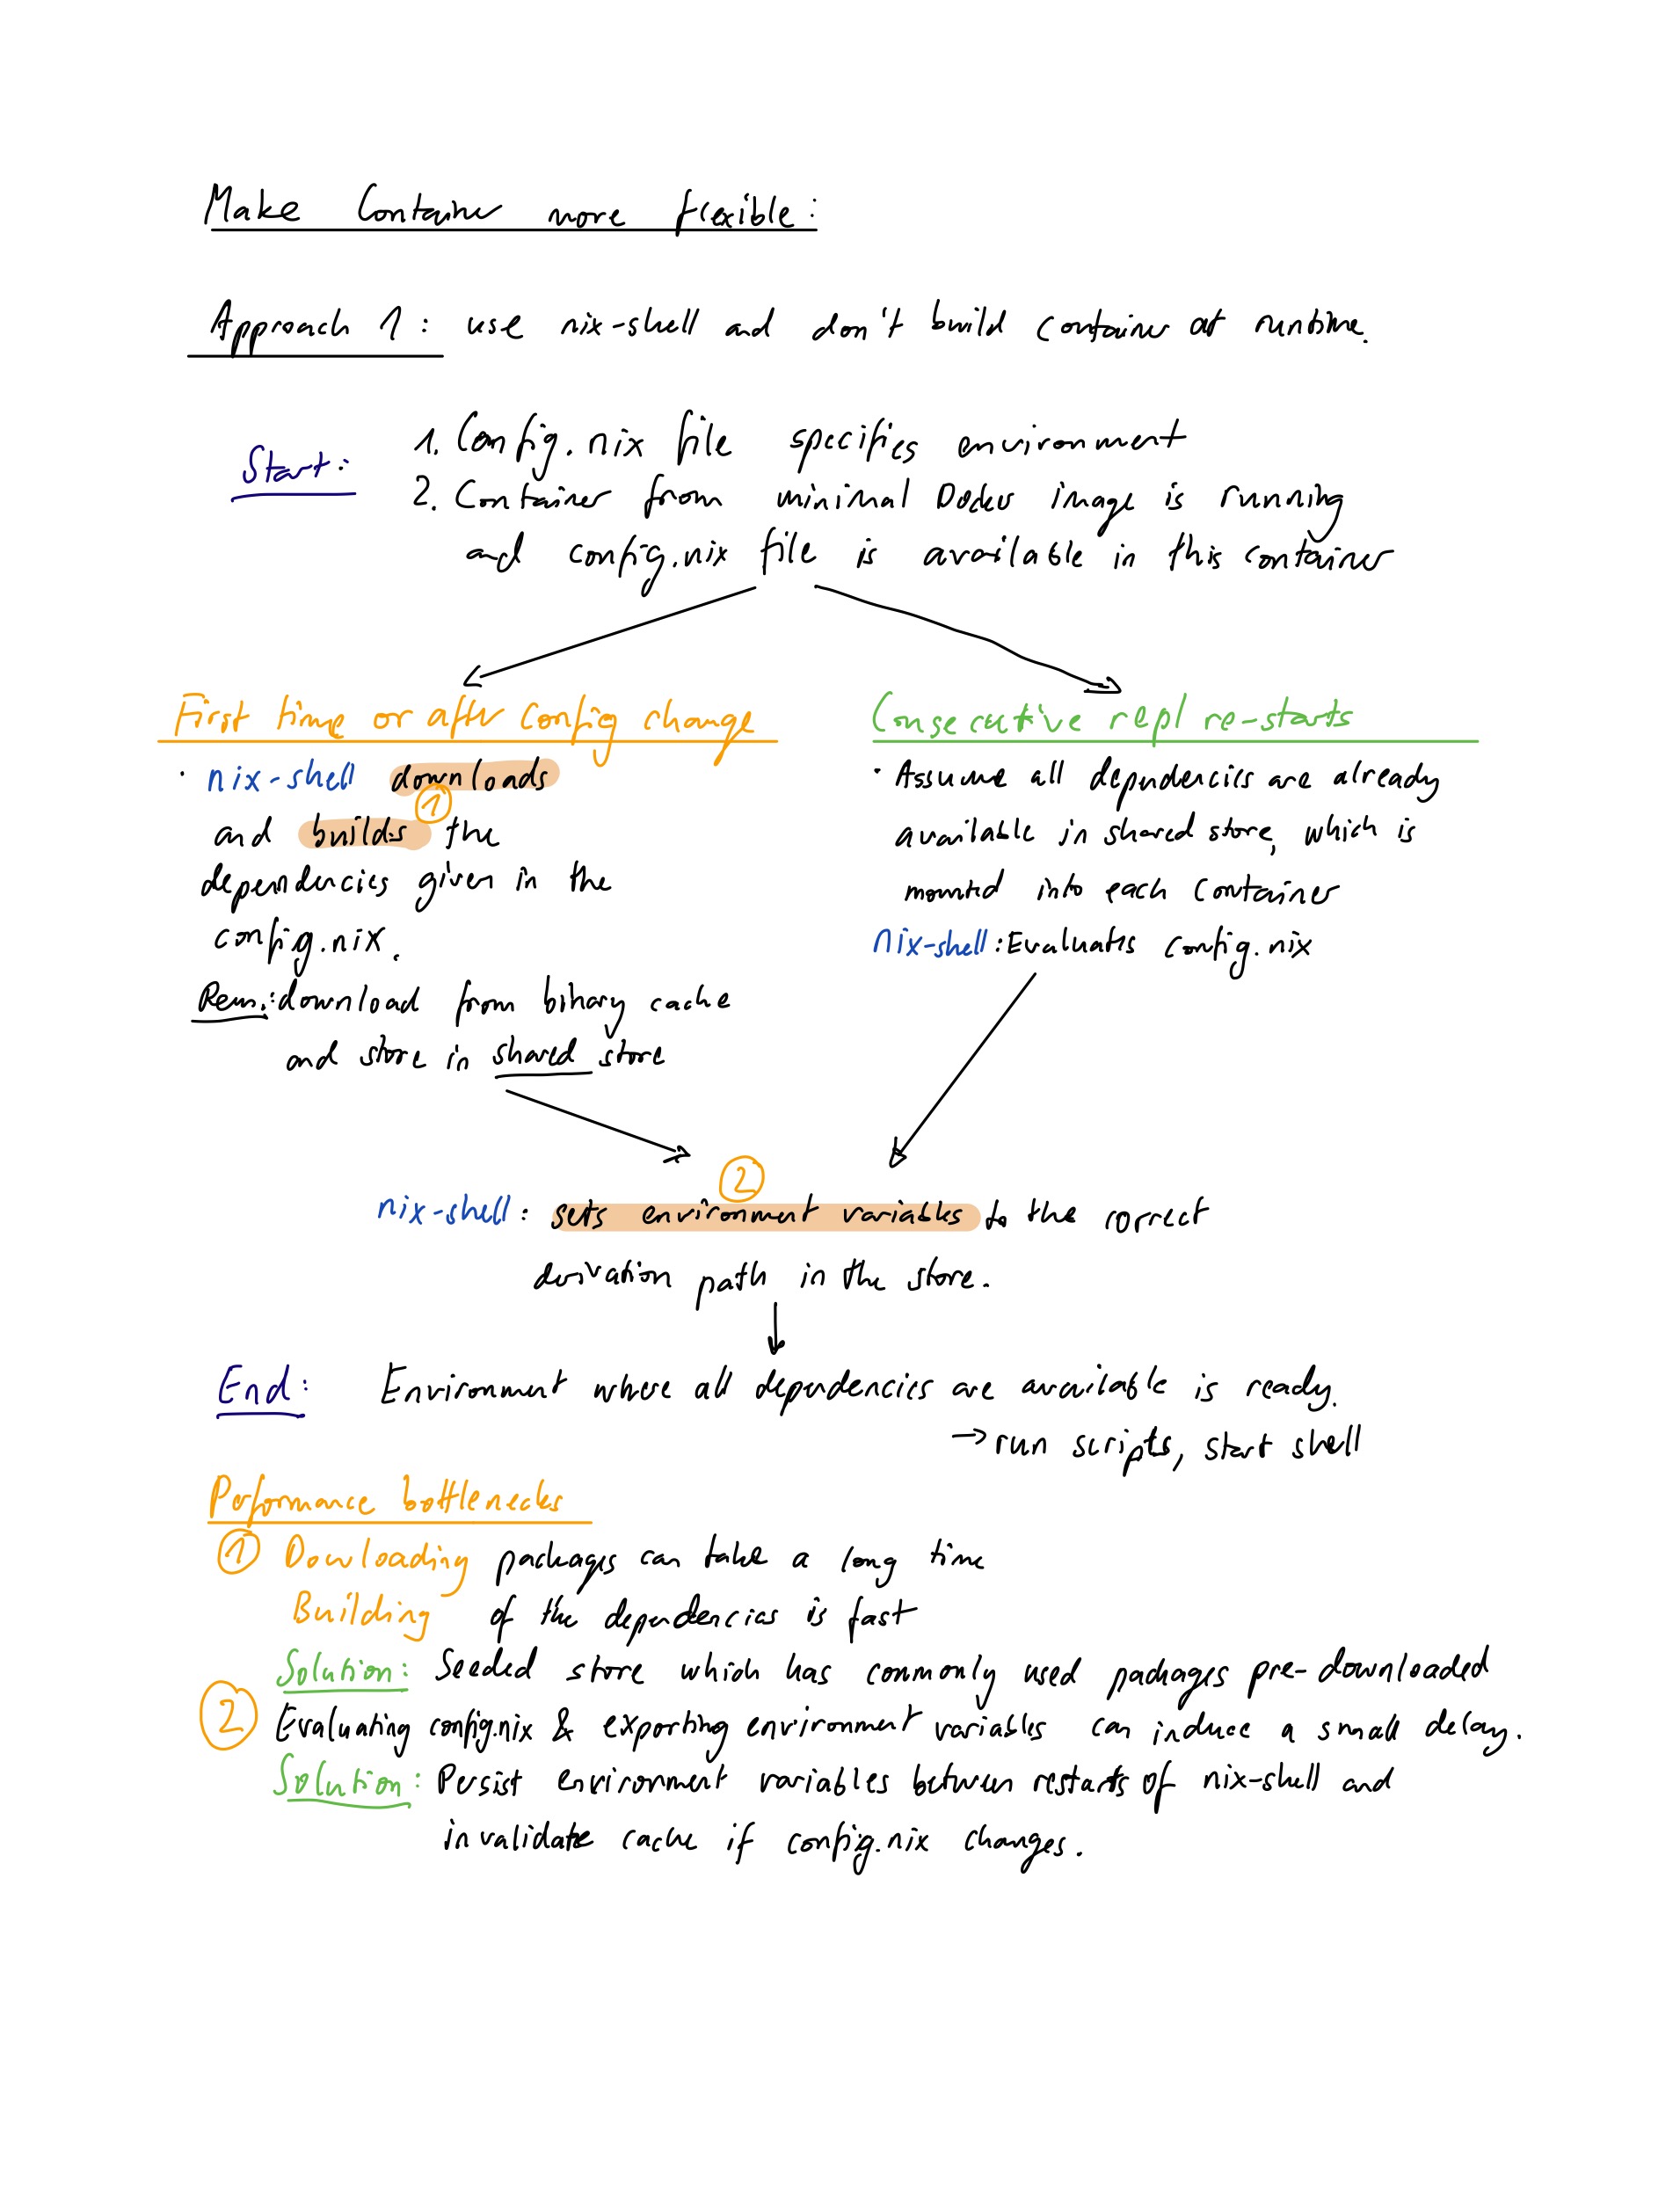 Make Container more flexible:
Approach 1: use nix-shell and don't build container at runtime.
Start:
1. Config.nix file specifies environment
2. Container from minimal Docker image is running
and config.nix file is available in this container
First time or after config change
· nix-shell downloads
①
and builds the
dependencies given in the
config.nix.
Rem.: download from binary cache
and store in shared store
Consecutive repl re-starts
· Assume all dependencies are already
available in shared store, which is
mounted into each container
Nix-shell: Evaluates config.nix
②
nix-shell: sets environment variables to the correct
derivation path in the store.
End: Environment where all dependencies are available is ready.
→ run scripts, start shell
Performance bottlenecks
① Dowloading packages can take a long time
Building of the dependencies is fast
Solution: Seeded store which has commonly used packages pre-downloaded
② Evaluating config.nix & exporting environment variables can induce a small delay.
Solution: Persist environment variables between restarts of nix-shell and
invalidate cache if config.nix changes.